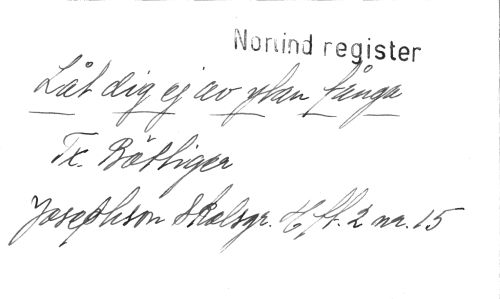 Norlind register
Låt dig ej av ytan fånga
Tx. Böttiger
Josephson Skolsgr. Hft. 2 nr. 15